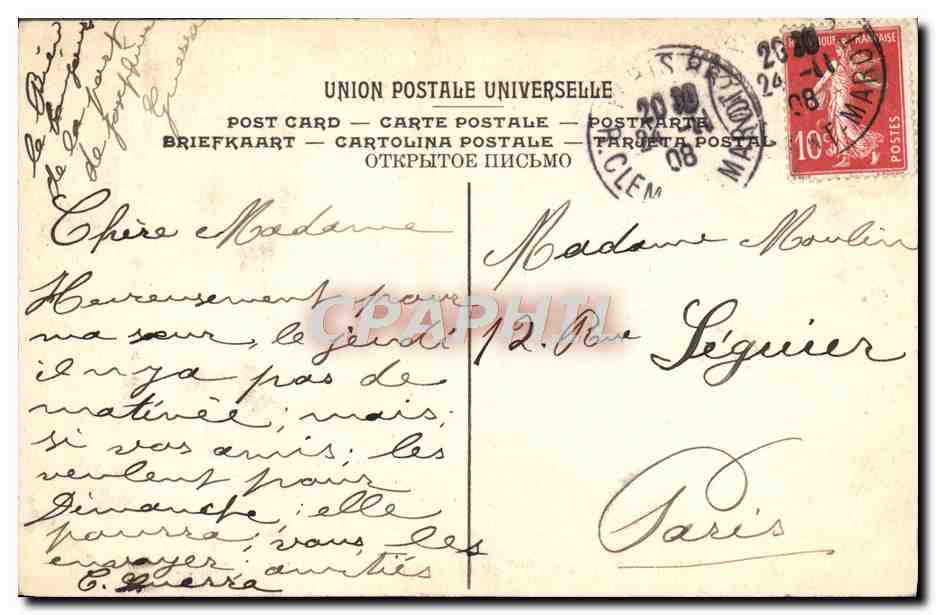 le Bien
bonjour
de la part
de Joséphine
Guerra
UNION POSTALE UNIVERSELLE
POST CARD — CARTE POSTALE — POSTKARTE
BRIEFKAART — CARTOLINA POSTALE — TARJETA POSTAL
ОТКРЫТОЕ ПИСЬМО
20 30
24 - 11
08
R. CLEM MAROT
20 30
24 - 11
08
MAROT
FRANÇAISE
10
POSTES
Chère Madame
Heureusement pour
ma sœur, le jeudi
il n'y a pas de
matinée; mais;
si vos amis; les
veulent pour
Dimanche; elle
pourra; vous les
envoyer; amitiés
C. Guerra
Madame Moulin
12. Rue Séguier
Paris
CPAPHIL